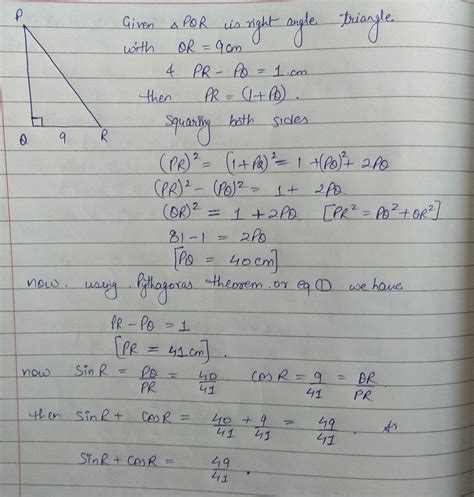 P
Q 9 R
Given △PQR is right angle triangle
with QR = 9cm
& PR - PQ = 1 cm
then PR = (1+PQ).
squaring both sides
(PR)² = (1+PQ)² = 1 + (PQ)² + 2PQ
(PR)² - (PQ)² = 1 + 2PQ
(QR)² = 1 + 2PQ [PR² = PQ² + QR²]
81 - 1 = 2PQ
[PQ = 40cm]
now. using Pythagoras theorem or eq ① we have
PR - PQ = 1
[PR = 41cm].
now sinR = PQ/PR = 40/41 cosR = 9/41 = QR/PR
then sinR + cosR = 40/41 + 9/41 = 49/41.
sinR + cosR = 49/41.